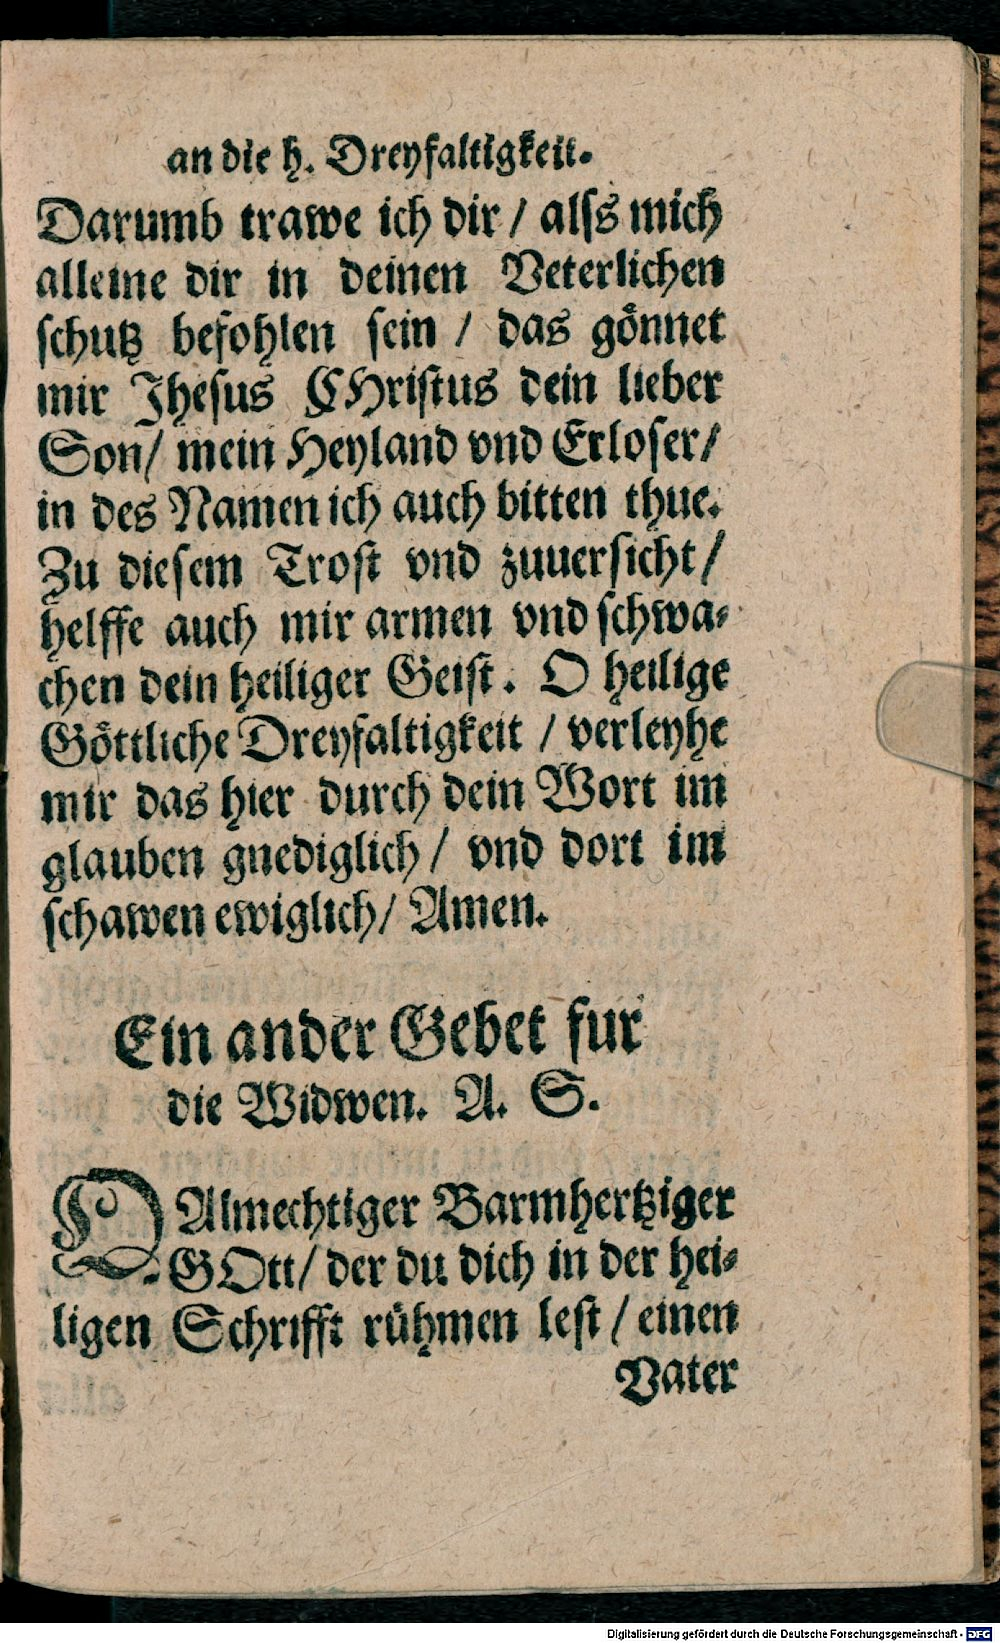 an die h. Dreyfaltigkeit.
Darumb trawe ich dir / alſs mich
alleine dir in deinen Veterlichen
ſchutz befohlen ſein / das gönnet
mir Jheſus CHriſtus dein lieber
Son / mein Heyland vnd Erloſer /
in des Namen ich auch bitten thue.
Zu dieſem Troſt vnd zuuerſicht /
helffe auch mir armen vnd ſchwa⸗
chen dein heiliger Geiſt. O heilige
Göttliche Dreyfaltigkeit / verleyhe
mir das hier durch dein Wort im
glauben gnediglich / vnd dort im
ſchawen ewiglich / Amen.
Ein ander Gebet fur
die Widwen. A. S.
O Almechtiger Barmhertziger
GOtt / der du dich in der hei⸗
ligen Schrifft rühmen leſt / einen
Vater
Digitalisierung gefördert durch die Deutsche Forschungsgemeinschaft - DFG